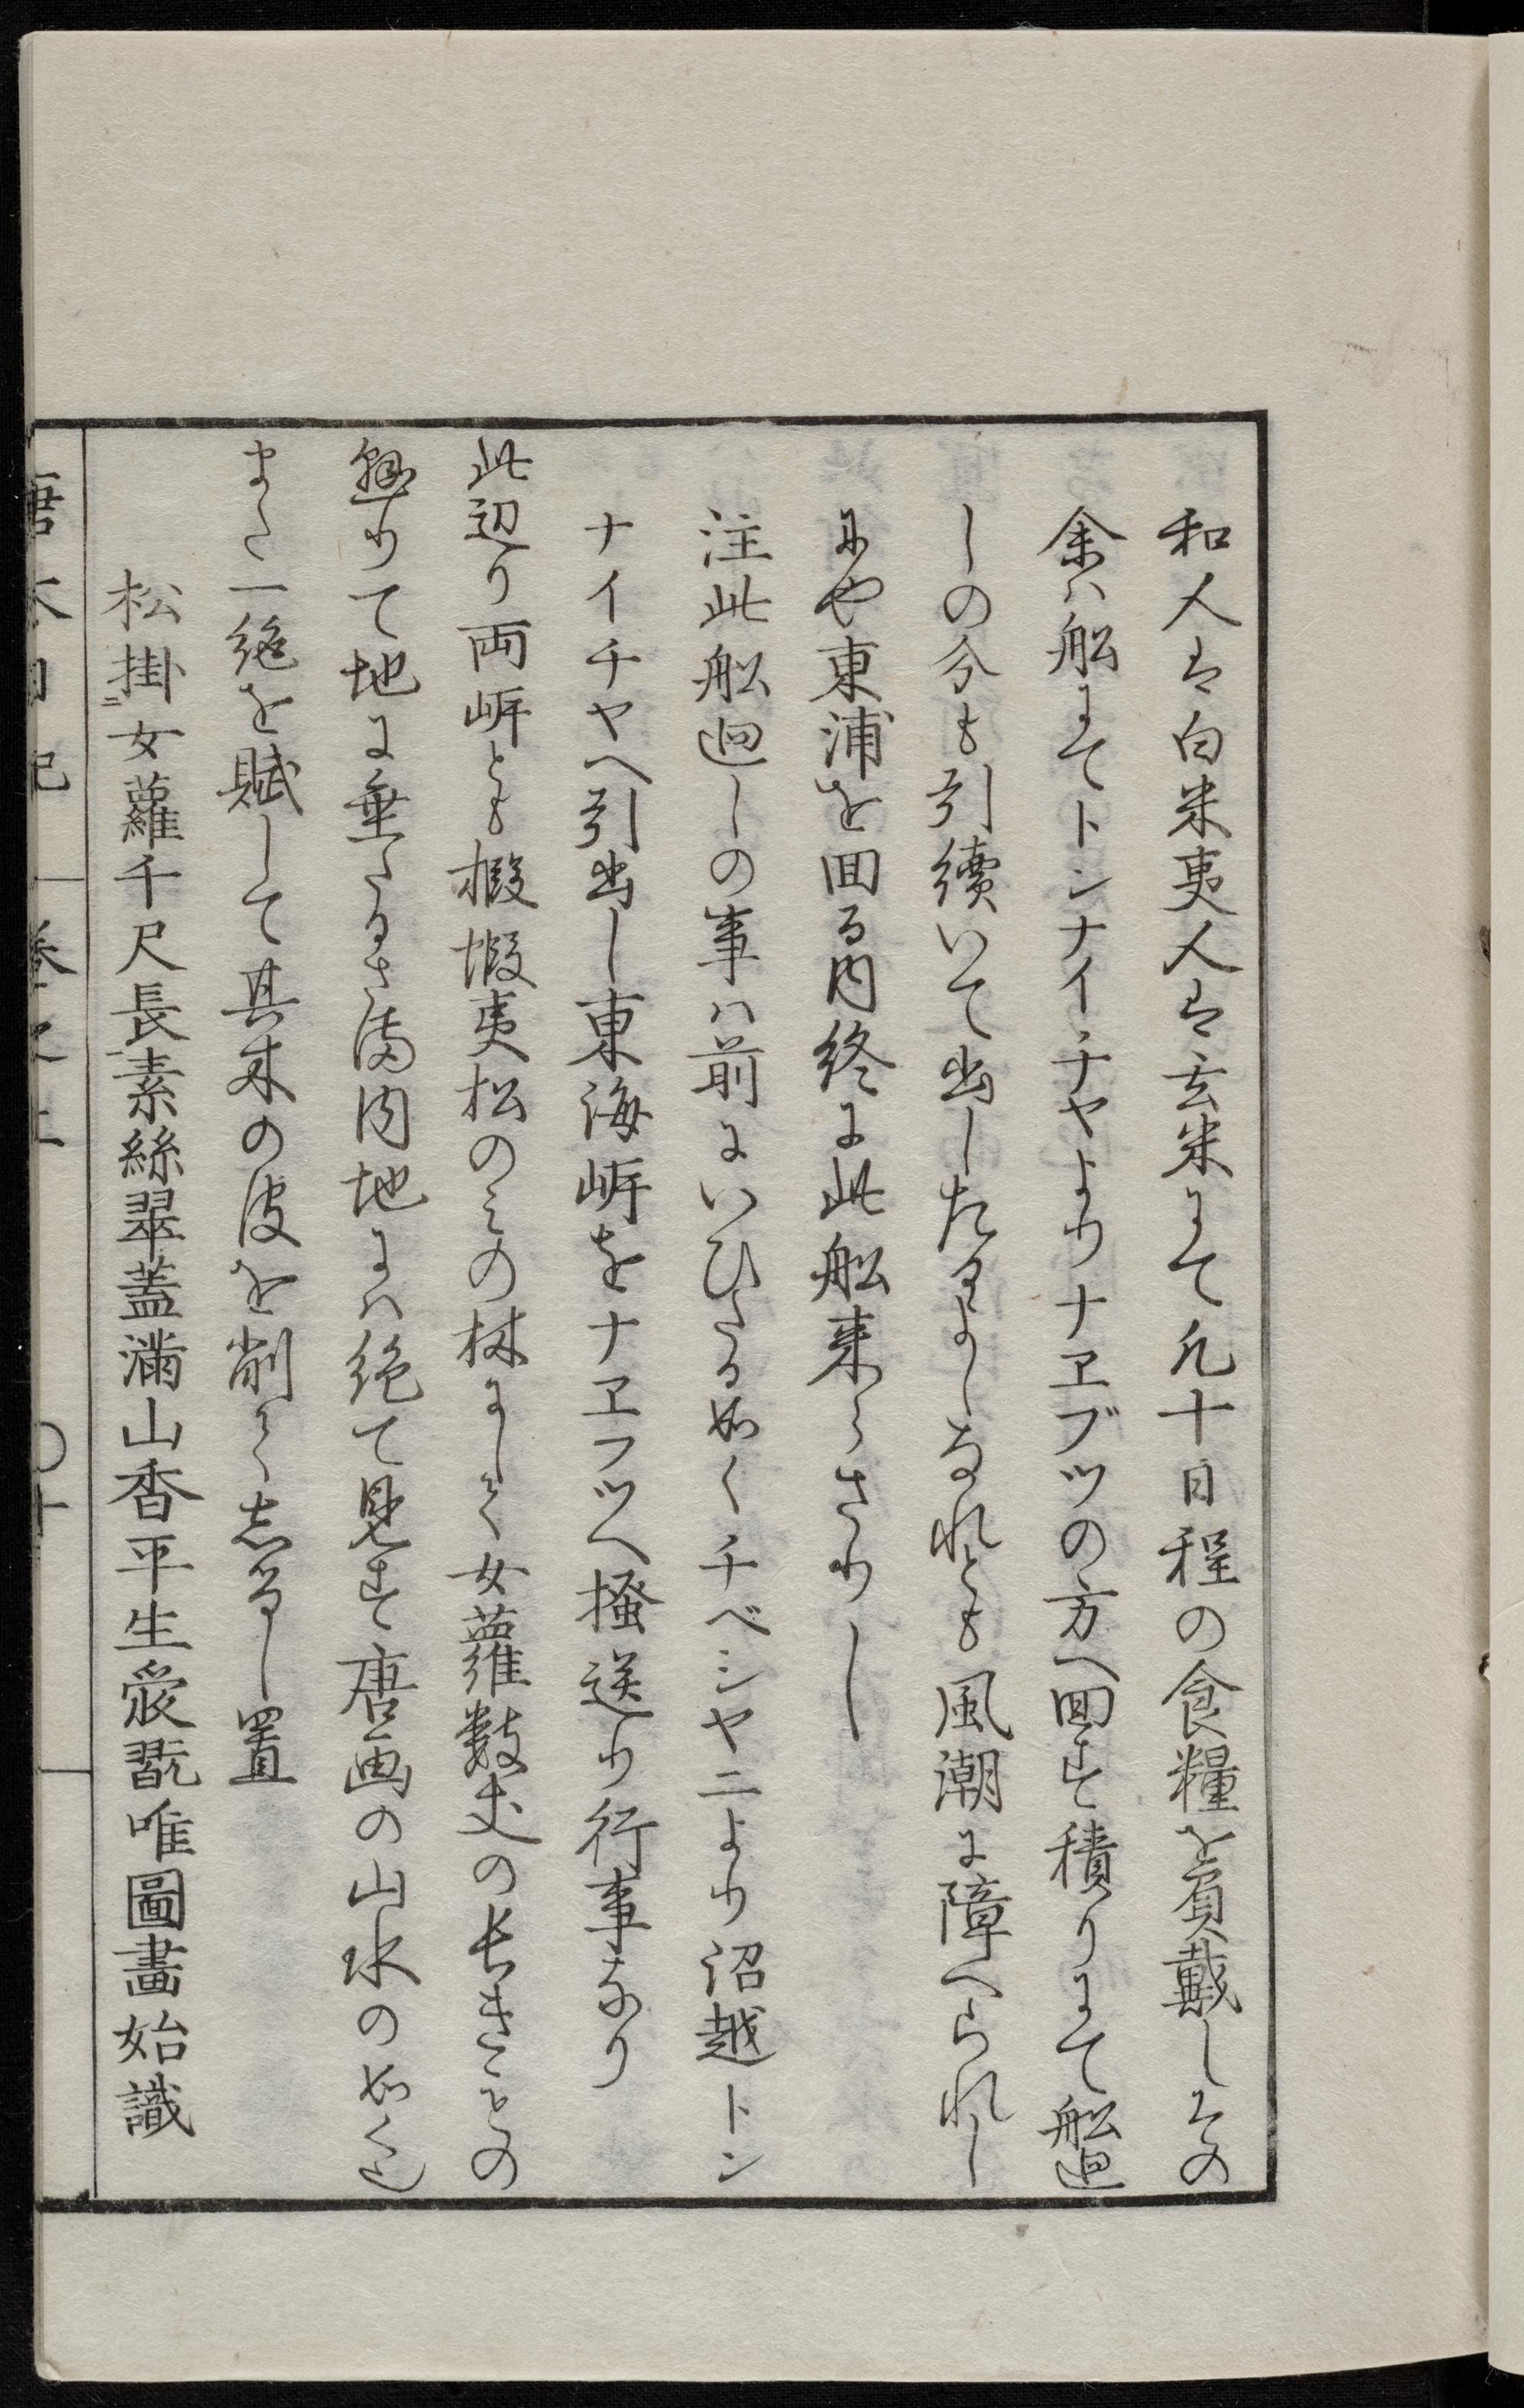 和人は白米夷人は玄米にて凡十日程の食糧を負戴しその
余ハ舩にてトンナイチヤよりナヱブツの方へ回す積りにて舩廻
しの分も引續いて出したるよしなれとも風潮に障へられし
にや東浦を回る内終に此舩来らさりし
注此舩廻しの事ハ前にいひたる如くチベシヤニより沼越トン
ナイチヤへ引出し東海岸をナヱフツへ掻送り行事なり
此辺り両岸とも椴蝦夷松のミの林にして女蘿数丈の長きもの
懸りて地に垂たるさま内地にハ絶て見す唐画の山水の如く也
また一絶を賦して其木の皮を削てしるし置
松掛ニ女蘿千尺長素絲翠蓋滿山香平生愛翫唯圖畫始識
唐太日記 巻之上 〇十